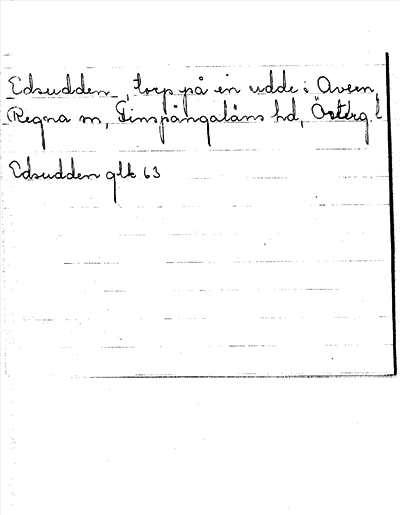 Edsudden, torp på en udde i Avern,
Regna sn, Finspångalåns hd, Österg. l
Edsudden glk 63